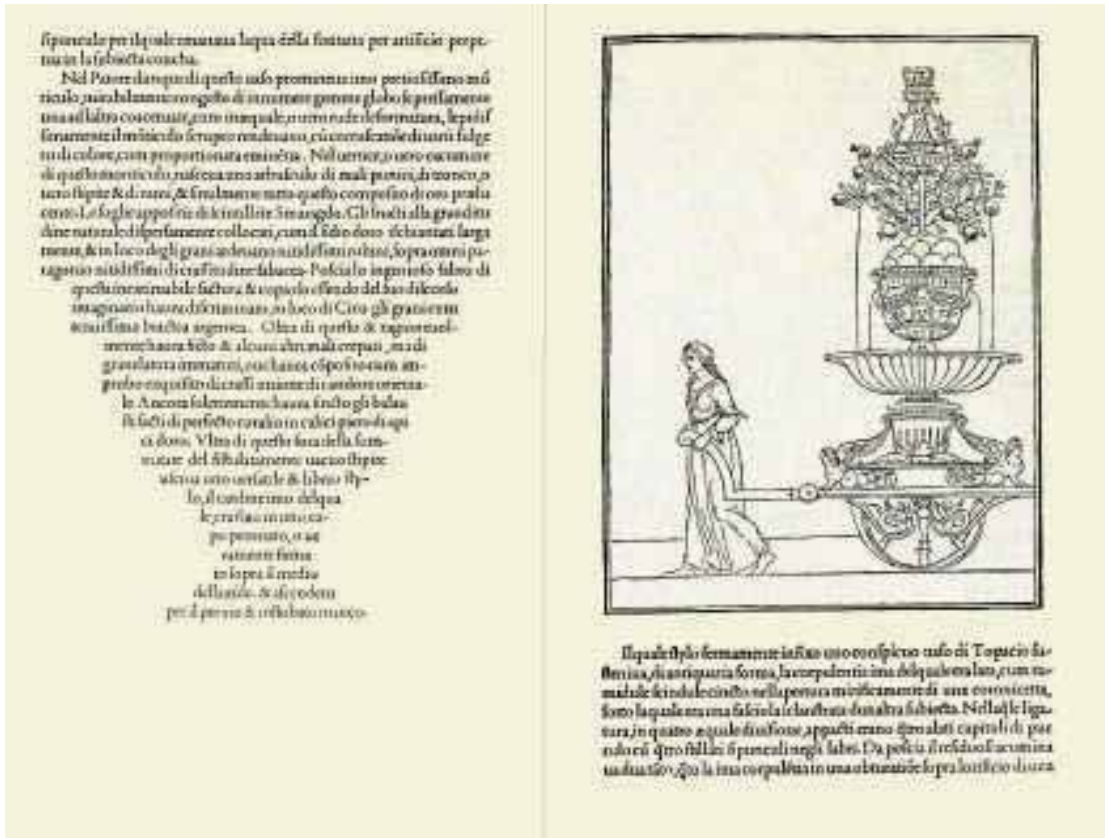 sipunculo per ilquale emanaua laqua della fontana per artificio perpe-
tua in la subiecta concha.
Nel Patore dunque di questo uaso prominaua uno pretiosissimo mō
ticulo, mirabilmente congesto di innumere gemme globose pressamente
una ad laltra coaceruate, cum inæquale, o uero rude deformatura, lepidis
simamente il mōticulo scrupeo rendeuano, cū corruscatiōe di uarii fulge
tri di colore, cum proportionata eminētia. Nel uertice, o uero cacumine
di questo monticulo, nasceua uno arbusculo di mali punici, di tronco, o
uero stipite & di rami, & similmente tutto questo composito di oro prælu
cente. Le foglie appositie di scintillāte Smaragdo. Gli fructi alla granditu
dine naturale dispersamente collocati, cum il sidio doro ischiantati larga
mente, & in loco degli grani ardeuano nitidissimi rubini, sopra omni pa-
ragonio nitidissimi di crassitudine fabacea. Poscia lo ingenioso fabro di
questa inextimabile factura & copioso essendo del suo discorso
imaginario haueua discriminato, in loco di Cico gli grani cum
tenuissima bractea argentea. Oltra di questo & ragioneuol-
mente haueua ficto & alcuni altri mali crepati, ma di
granelatura immaturi, oue haueua cōposito cum im-
probo exquisito di crassi unione di candore orienta-
le. Ancora solertemente haueua fincto gli balau
sti facti di perfecto coralio in calici pieni di api
ci doro. Vltra di questo fora della sum-
mitate del fistulatamente uacuo stipite
usciua uno uersatile & libero sty-
lo, il cardine imo delqua
le, era fixo in uno ca-
po peronato, o ue
ramente firma
to sopra il medio
dellaxide. & ascendeua
per il peruio & instobato trunco.
Ilquale stylo fermamente infixo uno conspicuo uaso di Topacio su-
stentaua, di antiquaria forma, la corpulentia ima delquale era lata, cum tu-
midule scindule cincto nella pertura mirificamente di una coronicetta,
sotto laquale era una fasciola iclaustrata dun altra subiecta. Nella q̄le liga-
tura, in quatro æquale diuisione, appacti erano q̄tro alati capituli di pue
rulo cū q̄tro stillāti sipunculi negli labri. Da poscia il residuo si acumina
ua dua tāto, q̄to la ima corpulētia in una obturatiōe sopra lorificio di una